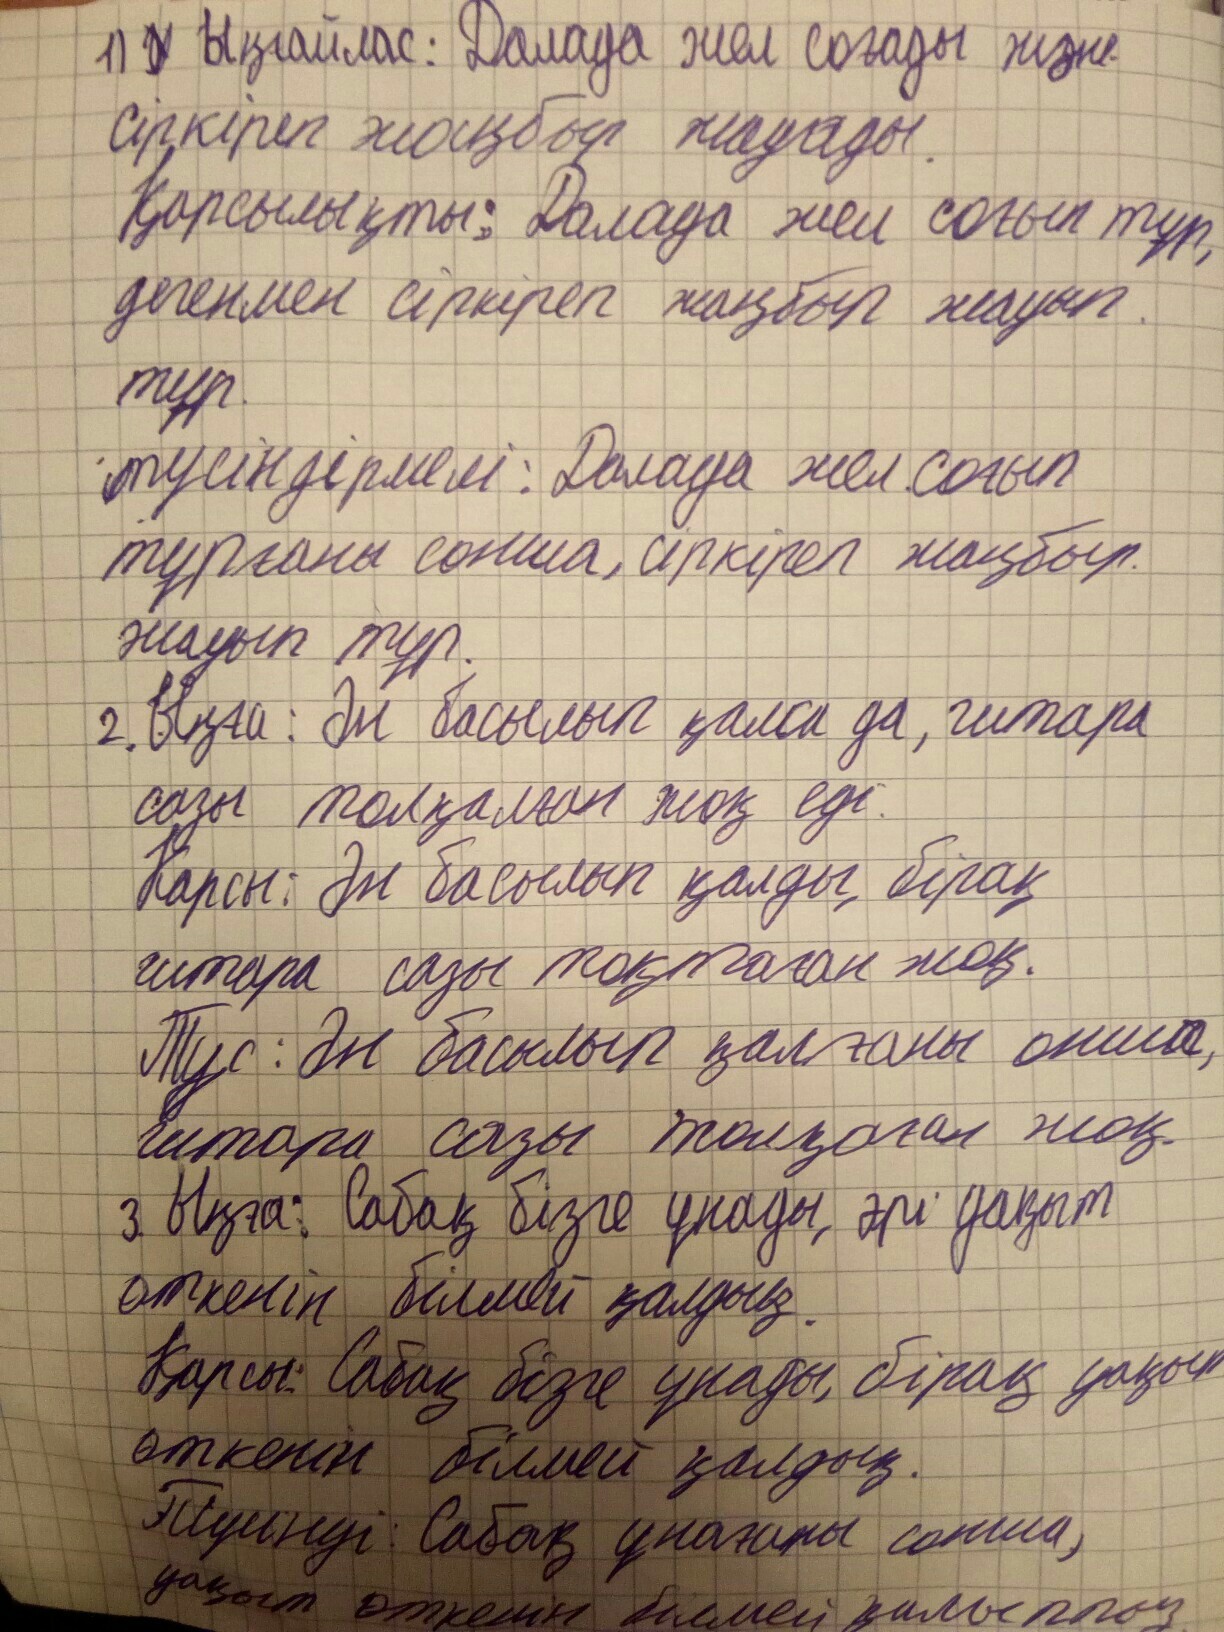 1) Ыңғайлас: Далада жел соғады және
сіркіреп жаңбыр жауады.
Қарсылықты: Далада жел соғып тұр,
дегенмен сіркіреп жаңбыр жауып
тұр.
түсіндірмелі: Далада жел соғып
тұрғаны сонша, сіркіреп жаңбыр
жауып тұр.
2. Ыңға: Ән басылып қалса да, гитара
сазы толқалған жоқ еді.
Қарсы: Ән басылып қалды, бірақ
гитара сазы тоқтаған жоқ.
Түс: Ән басылып қалғаны онша,
гитара сазы жоқ.
3. Ыңға: Сабақ бізге ұнады, әрі уақыт
өткенін білмей қалдық.
Қарсы: Сабақ бізге ұнады, бірақ уақыт
өткенін білмей қалдық.
Сабақ ұнағаны сонша,
уақыт өткенін білмей